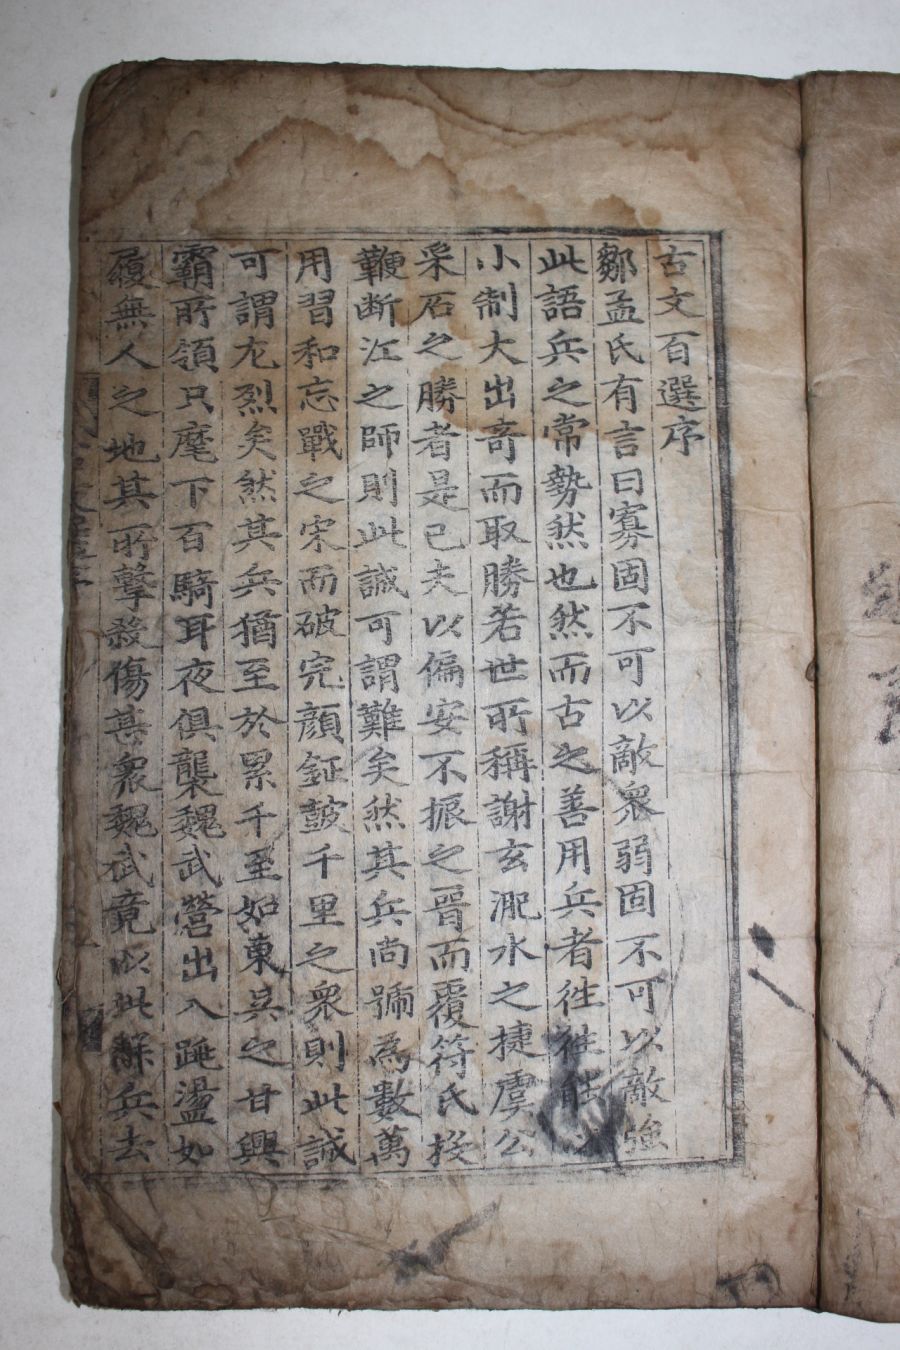 古文百選序
鄒孟氏有言曰寡固不可以敵衆弱固不可以敵強
此語兵之常勢然也然而古之善用兵者徃徃能以
小制大出竒而取勝若世所稱謝玄淝水之捷虞公
采石之勝者是已夫以偏安不振之晋而覆符氏投
鞭断江之師則此誠可謂難矣然其兵尚號爲數萬
用習和忘戰之宋而破完顔鉦鼓千里之衆則此誠
可謂尤烈矣然其兵猶至於累千至如東吳之甘興
霸所領只麾下百騎耳夜俱襲魏武營出入踔盪如
履無人之地其所擊殺傷甚衆魏武竟以此觧兵去